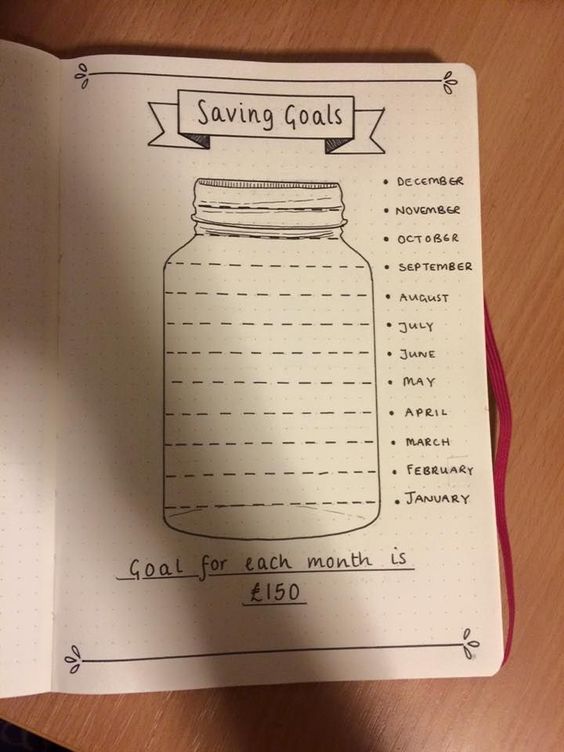 Saving Goals
• DECEMBER
• NOVEMBER
• OCTOBER
• SEPTEMBER
• AUGUST
• JULY
• JUNE
• MAY
• APRIL
• MARCH
• FEBRUARY
• JANUARY
Goal for each month is
£150